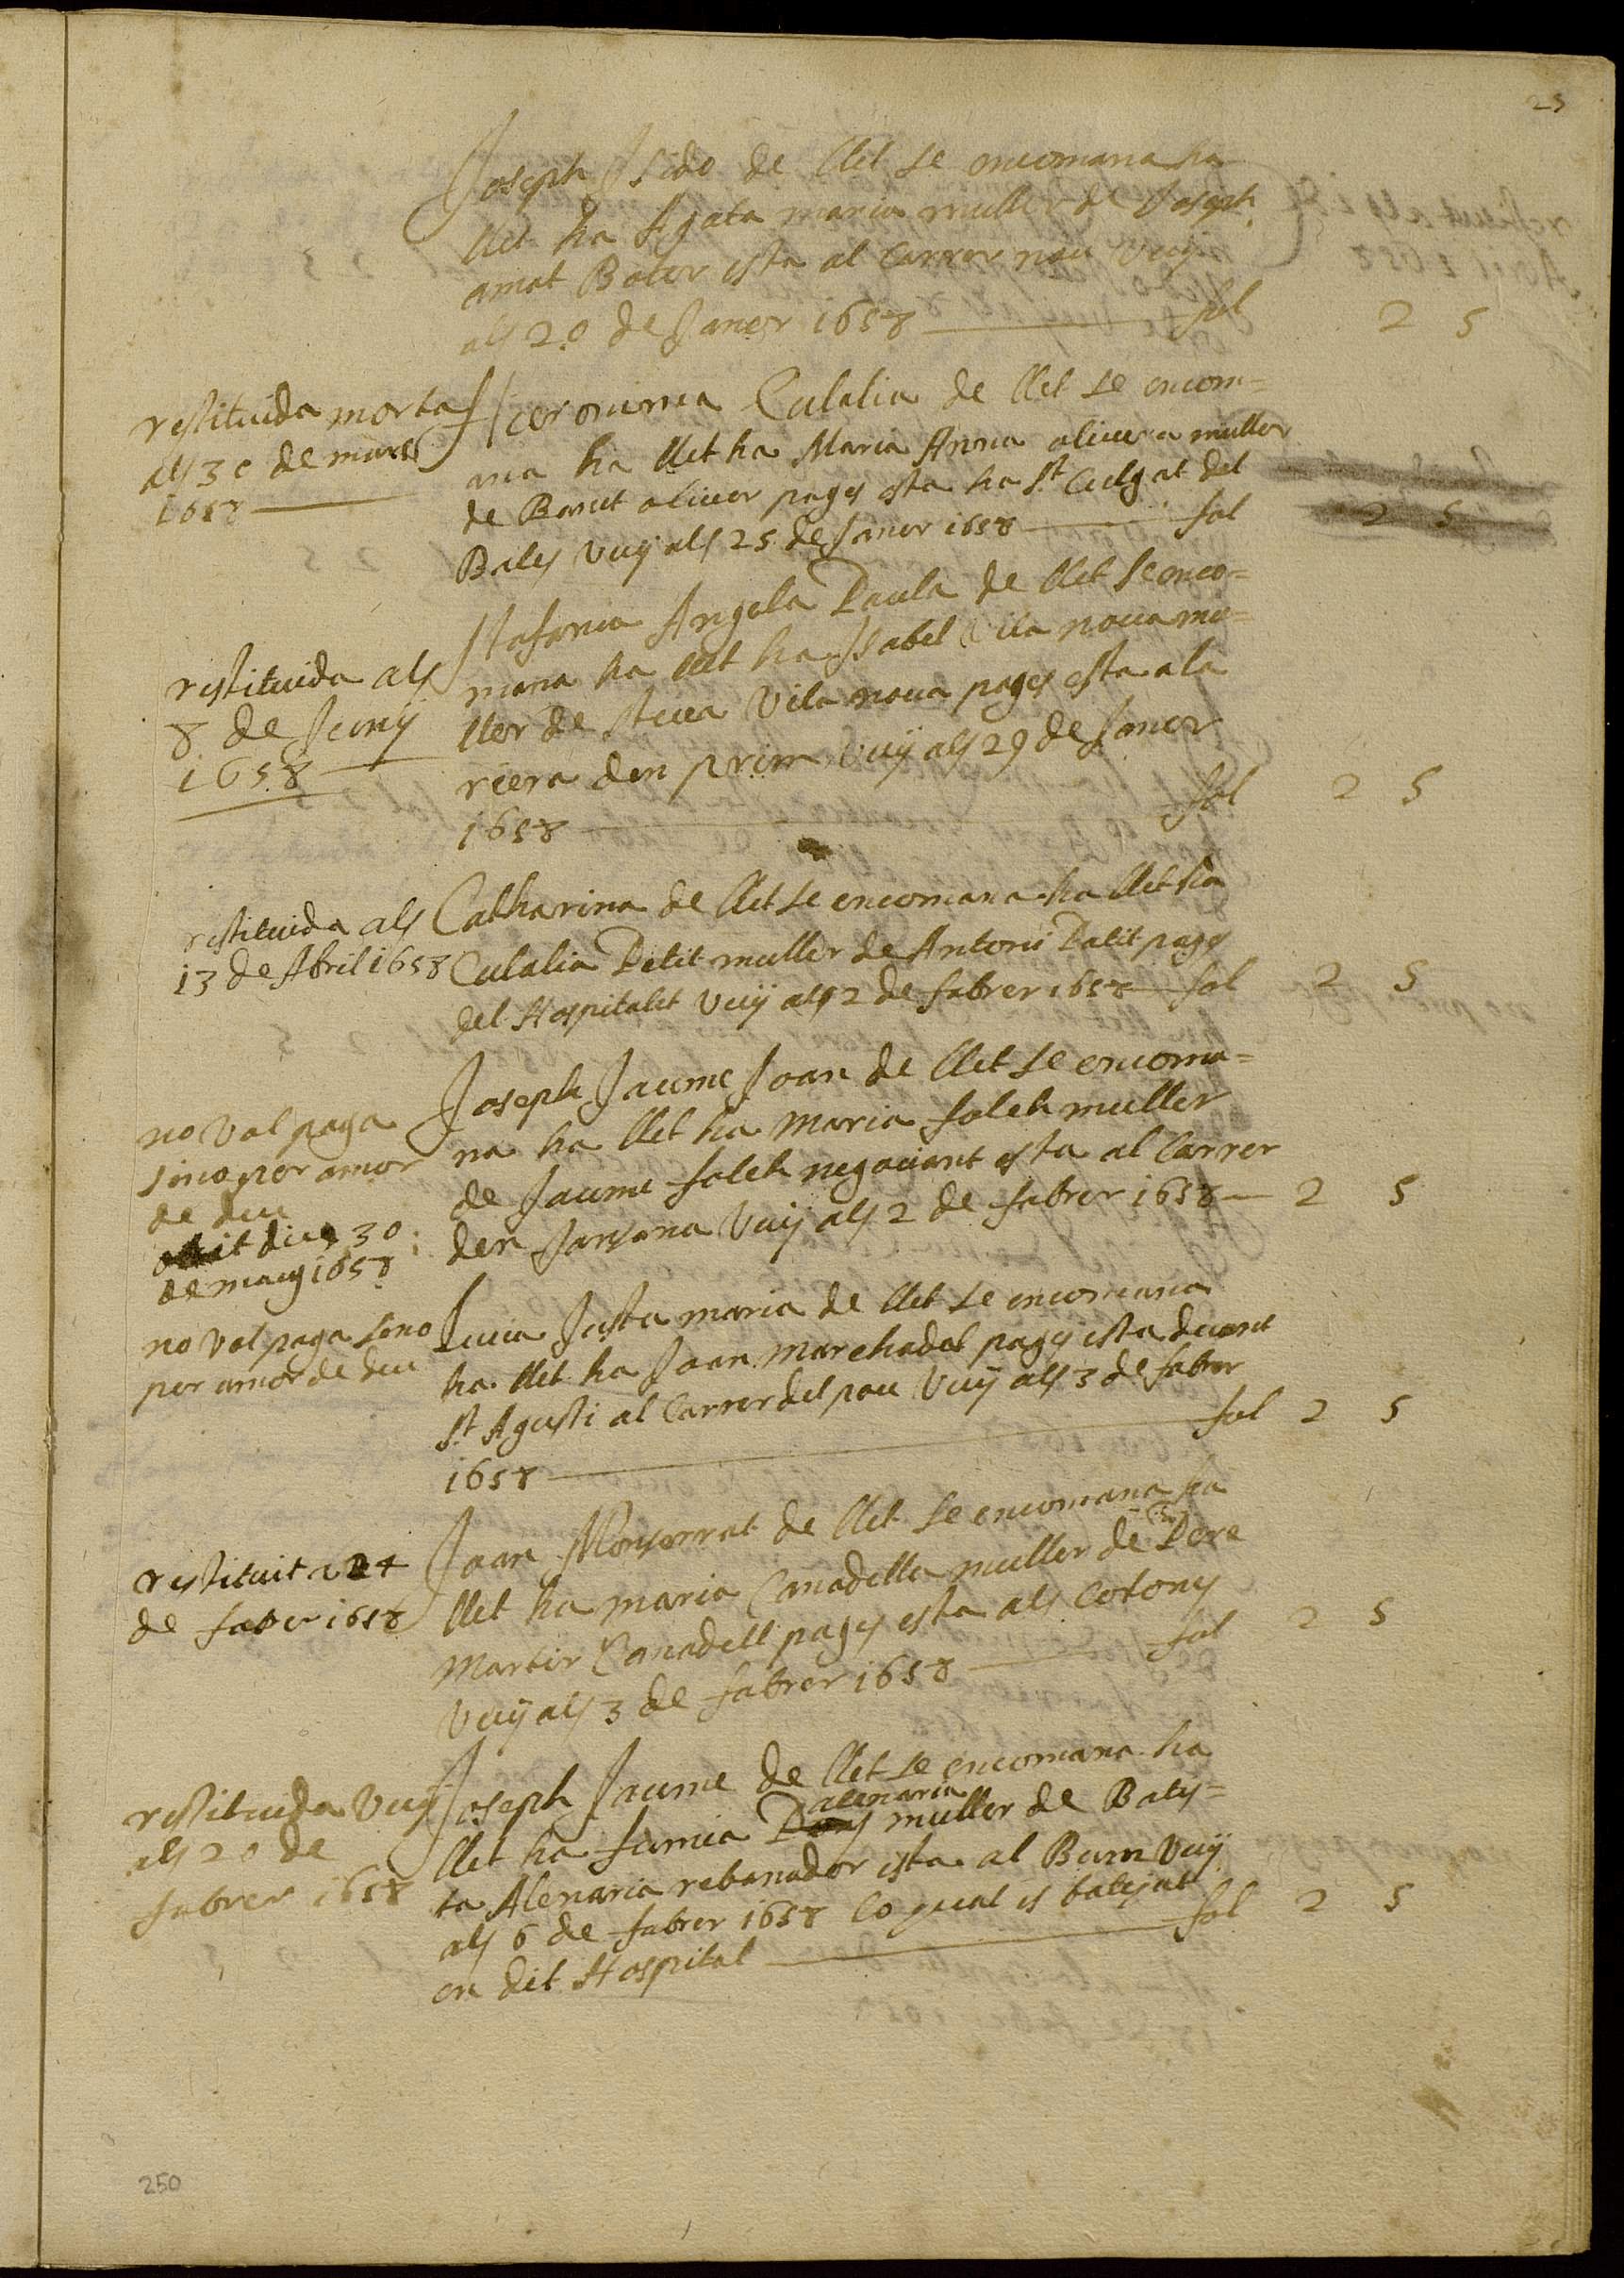 25
Joseph Isido de llet se encomana ha
llet ha Agata maria muller de Joseph
amat Baler esta al Carrer nou Vuÿ
als 20 de Janer 1658 — fol 2 5
restituida morta
als 30 de mars
1658 —
Hieronima Eulalia de llet se encom=
ana ha llet ha Maria Anna oliuera muller
de Banet oliuer pages esta ha St Culgat del
Bales Vuÿ als 25 de Janer 1658 — fol 2 5
restituida als
8 de Juny
1658 —
Stefania Angela Paula de llet se enco=
mana ha llet ha Isabel Vila noua mu=
ller de steua Vila noua pages esta a la
riera den prim Vuÿ als 29 de Janer
1658 — fol 2 5
restituida als
13 de Abril 1658
Catharina de llet se encomana ha llet ha
Eulalia Petit muller de Antoni Patit pages
del Hospitalet Vuÿ als 2 de febrer 1658 — fol 2 5
no Vol paga
sino per amor
de deu
obiit dies 30
de maig 1658
Joseph Jaume Joan de llet se encoma=
na ha llet ha Maria soleh muller
de Jaume soleh negociant esta al Carrer
den Jansana Vuÿ als 2 de febrer 1658 — 2 5
no Vol paga sino
per amor de deu
Lucia Justa maria de llet se encomana
ha llet ha Joan marchadal pages esta deuant
St Agusti al Carrer del pou Vuÿ als 3 de febrer
1658 — fol 2 5
restituit a 24
de febrer 1658
Joan Monserrat de llet se encomana ha
llet ha maria Canadella muller de Pere
Martir Canadell pages esta als Cotoners
Vuÿ als 3 de febrer 1658 — fol 2 5
restituida Vuÿ
als 20 de
febrer 1658
Joseph Jaume de llet se encomana ha
alenaria
llet ha muller de Batis=
ta Alenaria rebanador esta al Burn Vuÿ
als 6 de febrer 1658 lo qual es batejat
en dit Hospital — fol 2 5
250